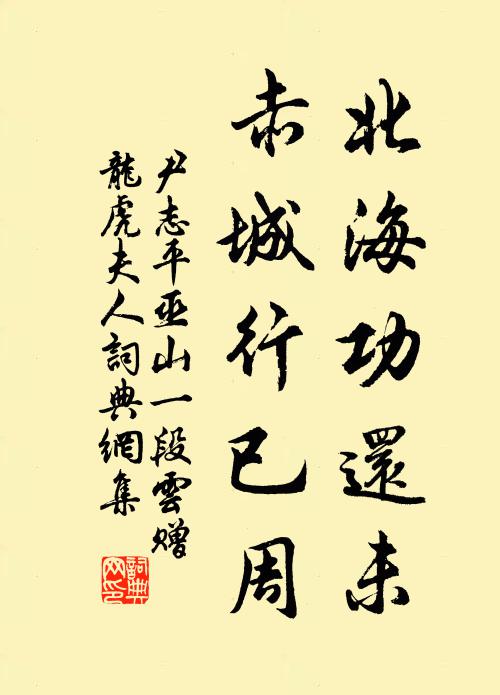 北海功還未
赤城行已周
尹志平巫山一段雲贈
龍虎夫人詞典網集
詞典网印